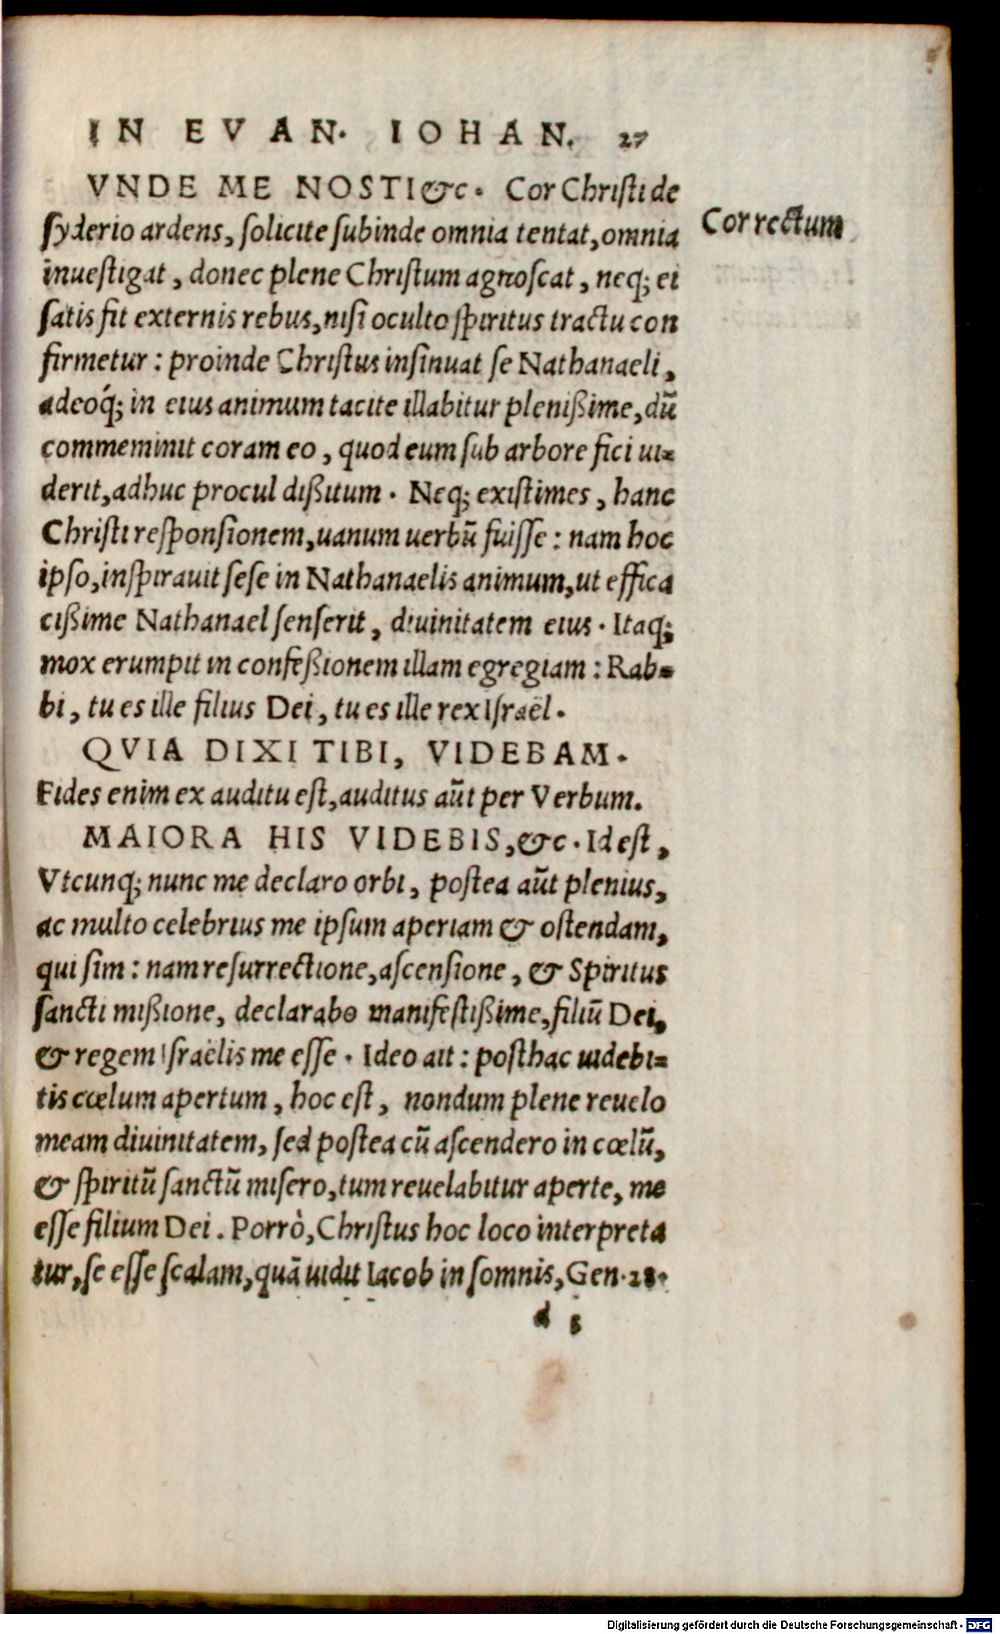 IN EVAN. IOHAN. 27
VNDE ME NOSTI &c. Cor Christi de
syderio ardens, solicite subinde omnia tentat, omnia
Correctum
inuestigat, donec plene Christum agnoscat, neq; ei
satis fit externis rebus, nisi oculto spiritus tractu con
firmetur: proinde Christus insinuat se Nathanaeli,
adeoq́; in eius animum tacite illabitur plenißime, dũ
commeminit coram eo, quod eum sub arbore fici ui=
derit, adhuc procul dißitum. Neq; existimes, hanc
Christi responsionem, uanum uerbũ fuisse: nam hoc
ipso, inspirauit sese in Nathanaelis animum, ut effica
cißime Nathanael senserit, diuinitatem eius. Itaq;
mox erumpit in confeßionem illam egregiam: Rab=
bi, tu es ille filius Dei, tu es ille rex Israël.
QVIA DIXI TIBI, VIDEBAM.
Fides enim ex auditu est, auditus aũt per Verbum.
MAIORA HIS VIDEBIS, &c. Id est,
Vtcunq; nunc me declaro orbi, postea aũt plenius,
ac multo celebrius me ipsum aperiam & ostendam,
qui sim: nam resurrectione, ascensione, & Spiritus
sancti mißione, declarabo manifestißime, filiũ Dei,
& regem Israëlis me esse. Ideo ait: posthac uidebi=
tis cœlum apertum, hoc est, nondum plene reuelo
meam diuinitatem, sed postea cũ ascendero in cœlũ,
& spiritũ sanctũ misero, tum reuelabitur aperte, me
esse filium Dei. Porrò, Christus hoc loco interpreta
tur, se esse scalam, quã uidit Iacob in somnis, Gen. 28.
d 5
Digitalisierung gefördert durch die Deutsche Forschungsgemeinschaft - DFG